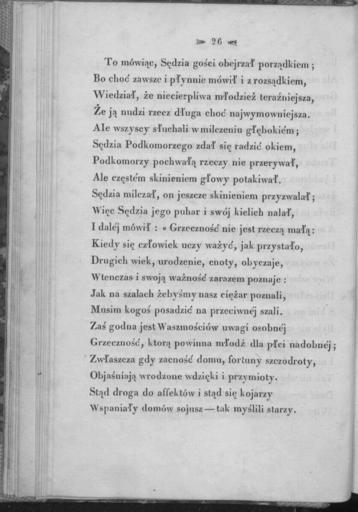 26
To mówiąc, Sędzia gości obejrzał porządkiem;
Bo choć zawsze i płynnie mówił i z rozsądkiem,
Wiedział, że niecierpliwa młodzież teraźniejsza,
Że ją nudzi rzecz długa choć najwymowniejsza.
Ale wszyscy słuchali w milczeniu głębokiém;
Sędzia Podkomorzego zdał się radzić okiem,
Podkomorzy pochwałą rzeczy nie przerywał,
Ale częstém skinieniem głowy potakiwał.
Sędzia milczał, on jeszcze skinieniem przyzwalał;
Więc Sędzia jego puhar i swój kielich nalał,
I daléj mówił : « Grzeczność nie jest rzeczą małą:
Kiedy się człowiek uczy ważyć, jak przystało,
Drugich wiek, urodzenie, cnoty, obyczaje,
Wtenczas i swoją ważność zarazem poznaje :
Jak na szalach żebyśmy nasz ciężar poznali,
Musim kogoś posadzić na przeciwnéj szali.
Zaś godna jest Waszmościów uwagi osobnéj
Grzeczność, którą powinna młodź dla płci nadobnéj;
Zwłaszcza gdy zacność domu, fortuny szczodroty,
Objaśniają wrodzone wdzięki i przymioty.
Stąd droga do affektów i stąd się kojarzy
Wspaniały domów sojusz — tak myślili starzy.